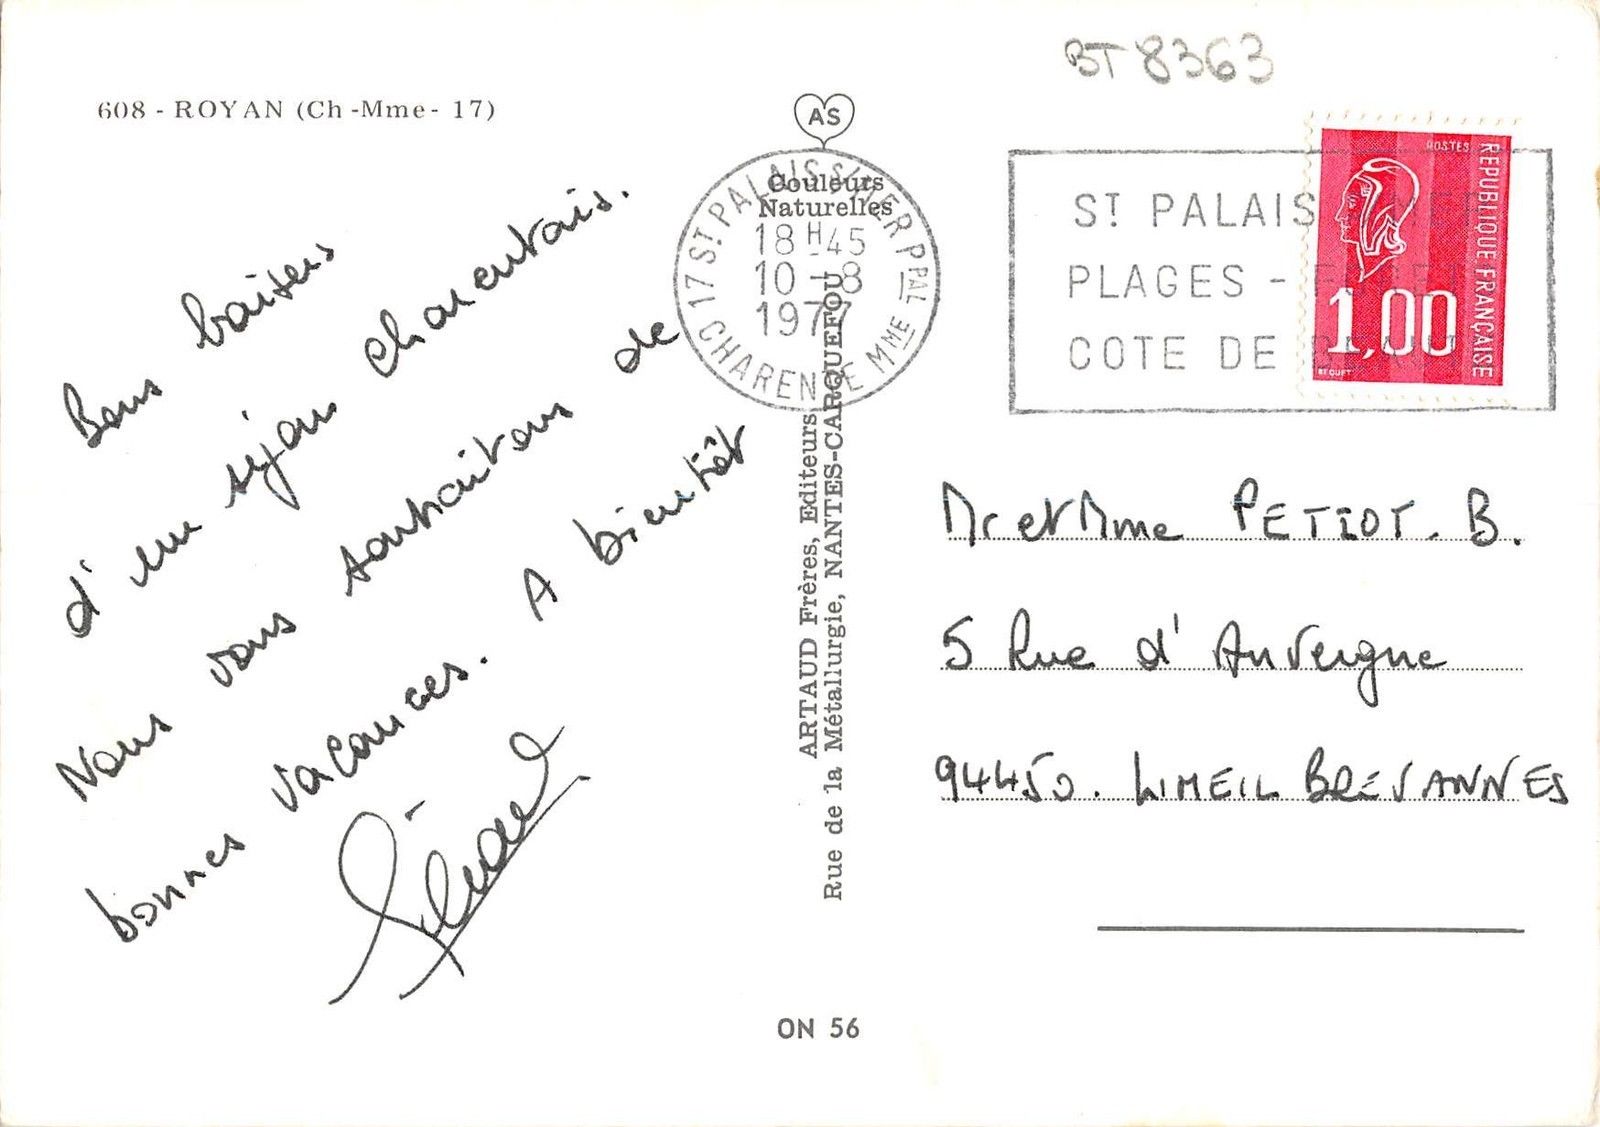 BT 8363
608 - ROYAN (Ch -Mme- 17)
AS
Couleurs
Naturelles
17 ST PALAIS S/MER PPAL
18 H 45
10 - 8
1977
CHARENTE MME
ST PALAIS
PLAGES -
COTE DE
POSTES
REPUBLIQUE FRANÇAISE
1,00
BEQUET
Bons baisers
d'un séjour charentais.
Nous vous souhaitons de
bonnes vacances. A bientôt
ARTAUD Frères, Editeurs
Rue de la Métallurgie, NANTES-CARQUEFOU
Mr et Mme PETIOT. B.
5 Rue d'Auvergne
94450. LIMEIL BREVANNES
ON 56